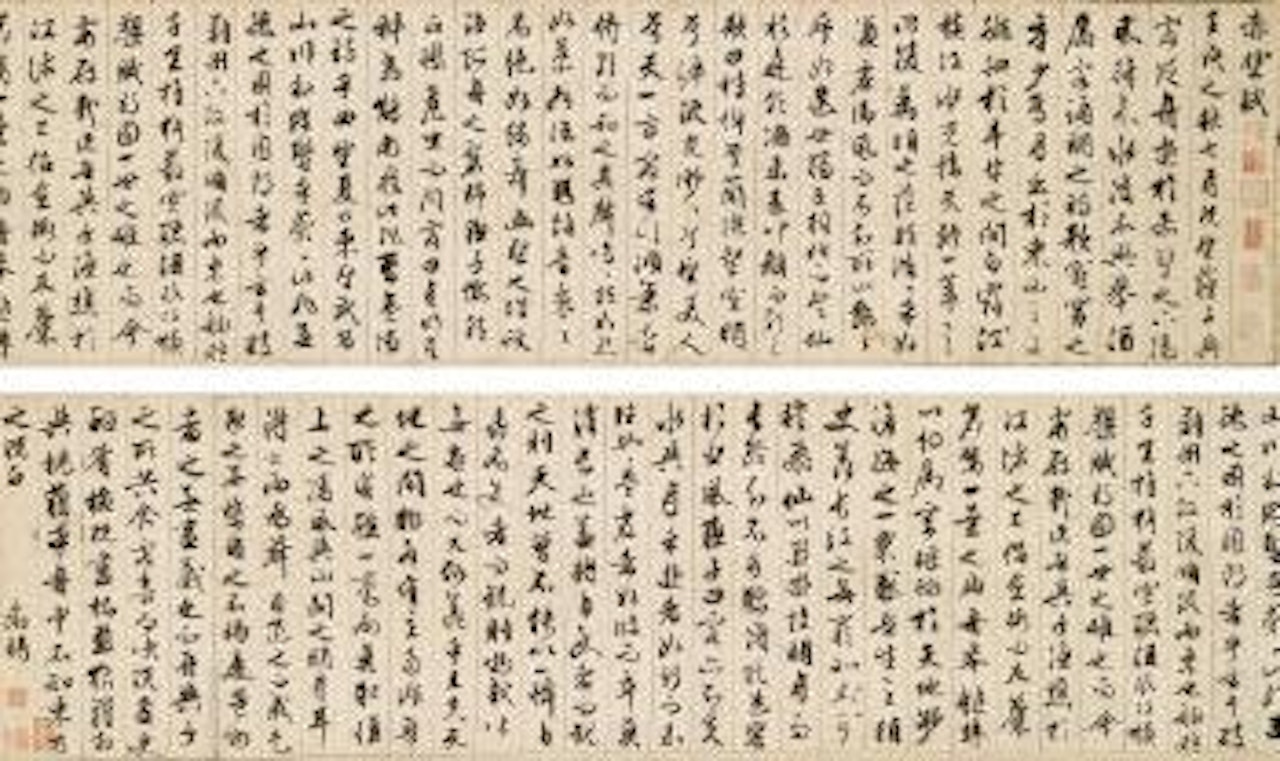 赤壁賦
壬戌之秋七月既望蘇子與
客泛舟遊於赤壁之下清
風徐來水波不興舉酒
屬客誦明月之詩歌窈窕之
章少焉月出於東山之上
徘徊於斗牛之間白露
橫江水光接天縱一葦之
所如凌萬頃之茫然浩浩乎如
馮虛御風而不知其所止飄
乎如遺世獨立羽化而登仙
於是飲酒樂甚扣舷而歌之
歌曰桂棹兮蘭槳擊空明
兮泝流光渺渺兮予懷望美人
兮天一方客有吹洞簫者
倚歌而和之其聲嗚嗚然如怨
如慕如泣如訴餘音嫋嫋
不絕如縷舞幽壑之潛蛟
泣孤舟之嫠婦蘇子愀然
正襟危坐而問客曰何為其
稀烏鵲南飛此非曹孟德
之詩乎西望夏口東望武昌
山川相繆鬱乎蒼蒼此非孟
德之困於周郎者乎方其破
荊州下江陵順流而東也舳艫
千里旌旗蔽空釃酒臨江橫
槊賦詩固一世之雄也而今
安在哉況吾與子漁樵於
江渚之上侶魚蝦而友麋
德之困於周郎者乎方其破
荊州下江陵順流而東也舳艫
千里旌旗蔽空釃酒臨江橫
槊賦詩固一世之雄也而今
安在哉況吾與子漁樵於
江渚之上侶魚蝦而友麋
鹿駕一葉之扁舟舉匏樽
以相屬寄蜉蝣於天地渺
滄海之一粟哀吾生之須
臾羨長江之無窮挾飛
仙以遨遊抱明月而
長終知不可驟得託遺響
於悲風蘇子曰客亦知夫
水與月乎逝者如斯而未
嘗往也盈虛者如彼而卒莫
消長也蓋將自其變者而觀
之則天地曾不能以一瞬自
其不變者而觀之則物與我皆
無盡也而又何羨乎且夫天
地之間物各有主苟非吾
之所有雖一毫而莫取惟江
上之清風與山間之明月耳
得之而為聲目遇之而成色
取之無禁用之不竭是造物
者之無盡藏也而吾與子
之所共食客喜而笑洗盞更
酌肴核既盡杯盤狼藉相
與枕藉乎舟中不知東方
之既白
徵明